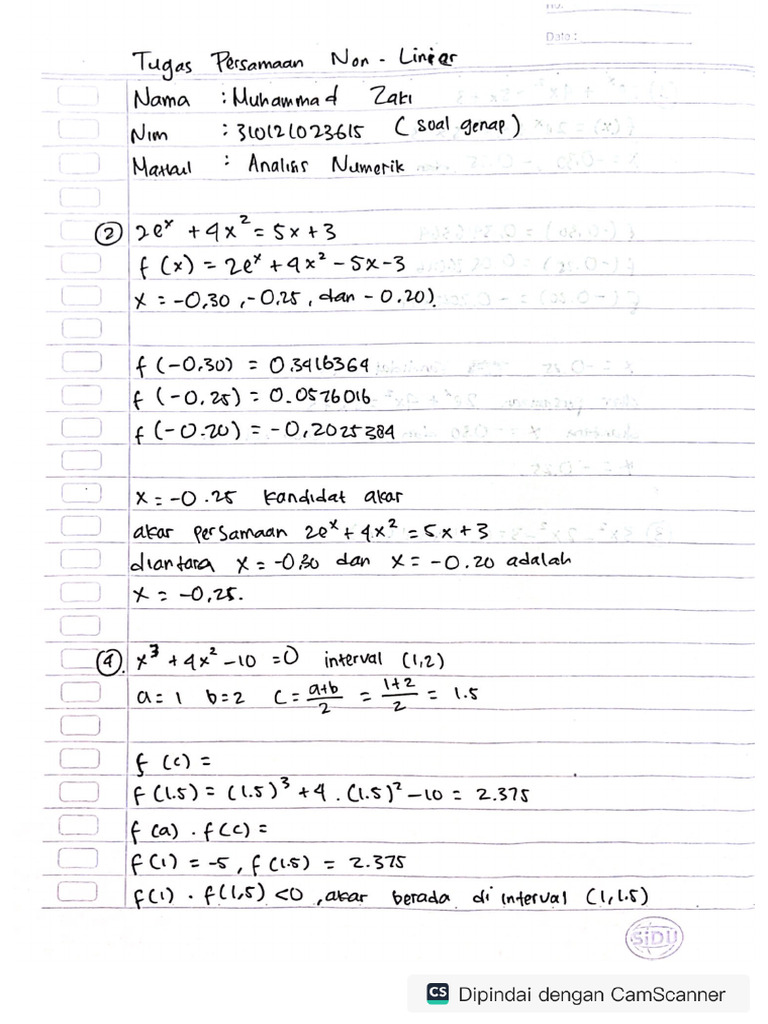 No.
Date :
Tugas Persamaan Non - Linier
Nama : Muhammad Zaki
Nim : 310121023615 ( soal genap )
Matkul : Analisis Numerik
② 2eˣ + 4x² = 5x + 3
f (x) = 2eˣ + 4x² - 5x - 3
x = -0,30 , -0,25 , dan - 0,20)
f (-0,30) = 0.3416364
f (-0,25) = 0.0576016
f (-0.20) = -0,2025384
x = -0.25 kandidat akar
akar persamaan 2eˣ + 4x² = 5x + 3
diantara x = -0,30 dan x = -0.20 adalah
x = -0,25.
④. x³ + 4x² - 10 = 0 interval (1,2)
a = 1 b = 2 c = a+b/2 = 1+2/2 = 1.5
f (c) =
f (1.5) = (1.5)³ + 4 . (1.5)² - 10 = 2.375
f (a) . f (c) =
f (1) = -5 , f (1.5) = 2.375
f(1) . f (1,5) < 0 , akar berada di interval (1, 1.5)
SiDU
CS Dipindai dengan CamScanner